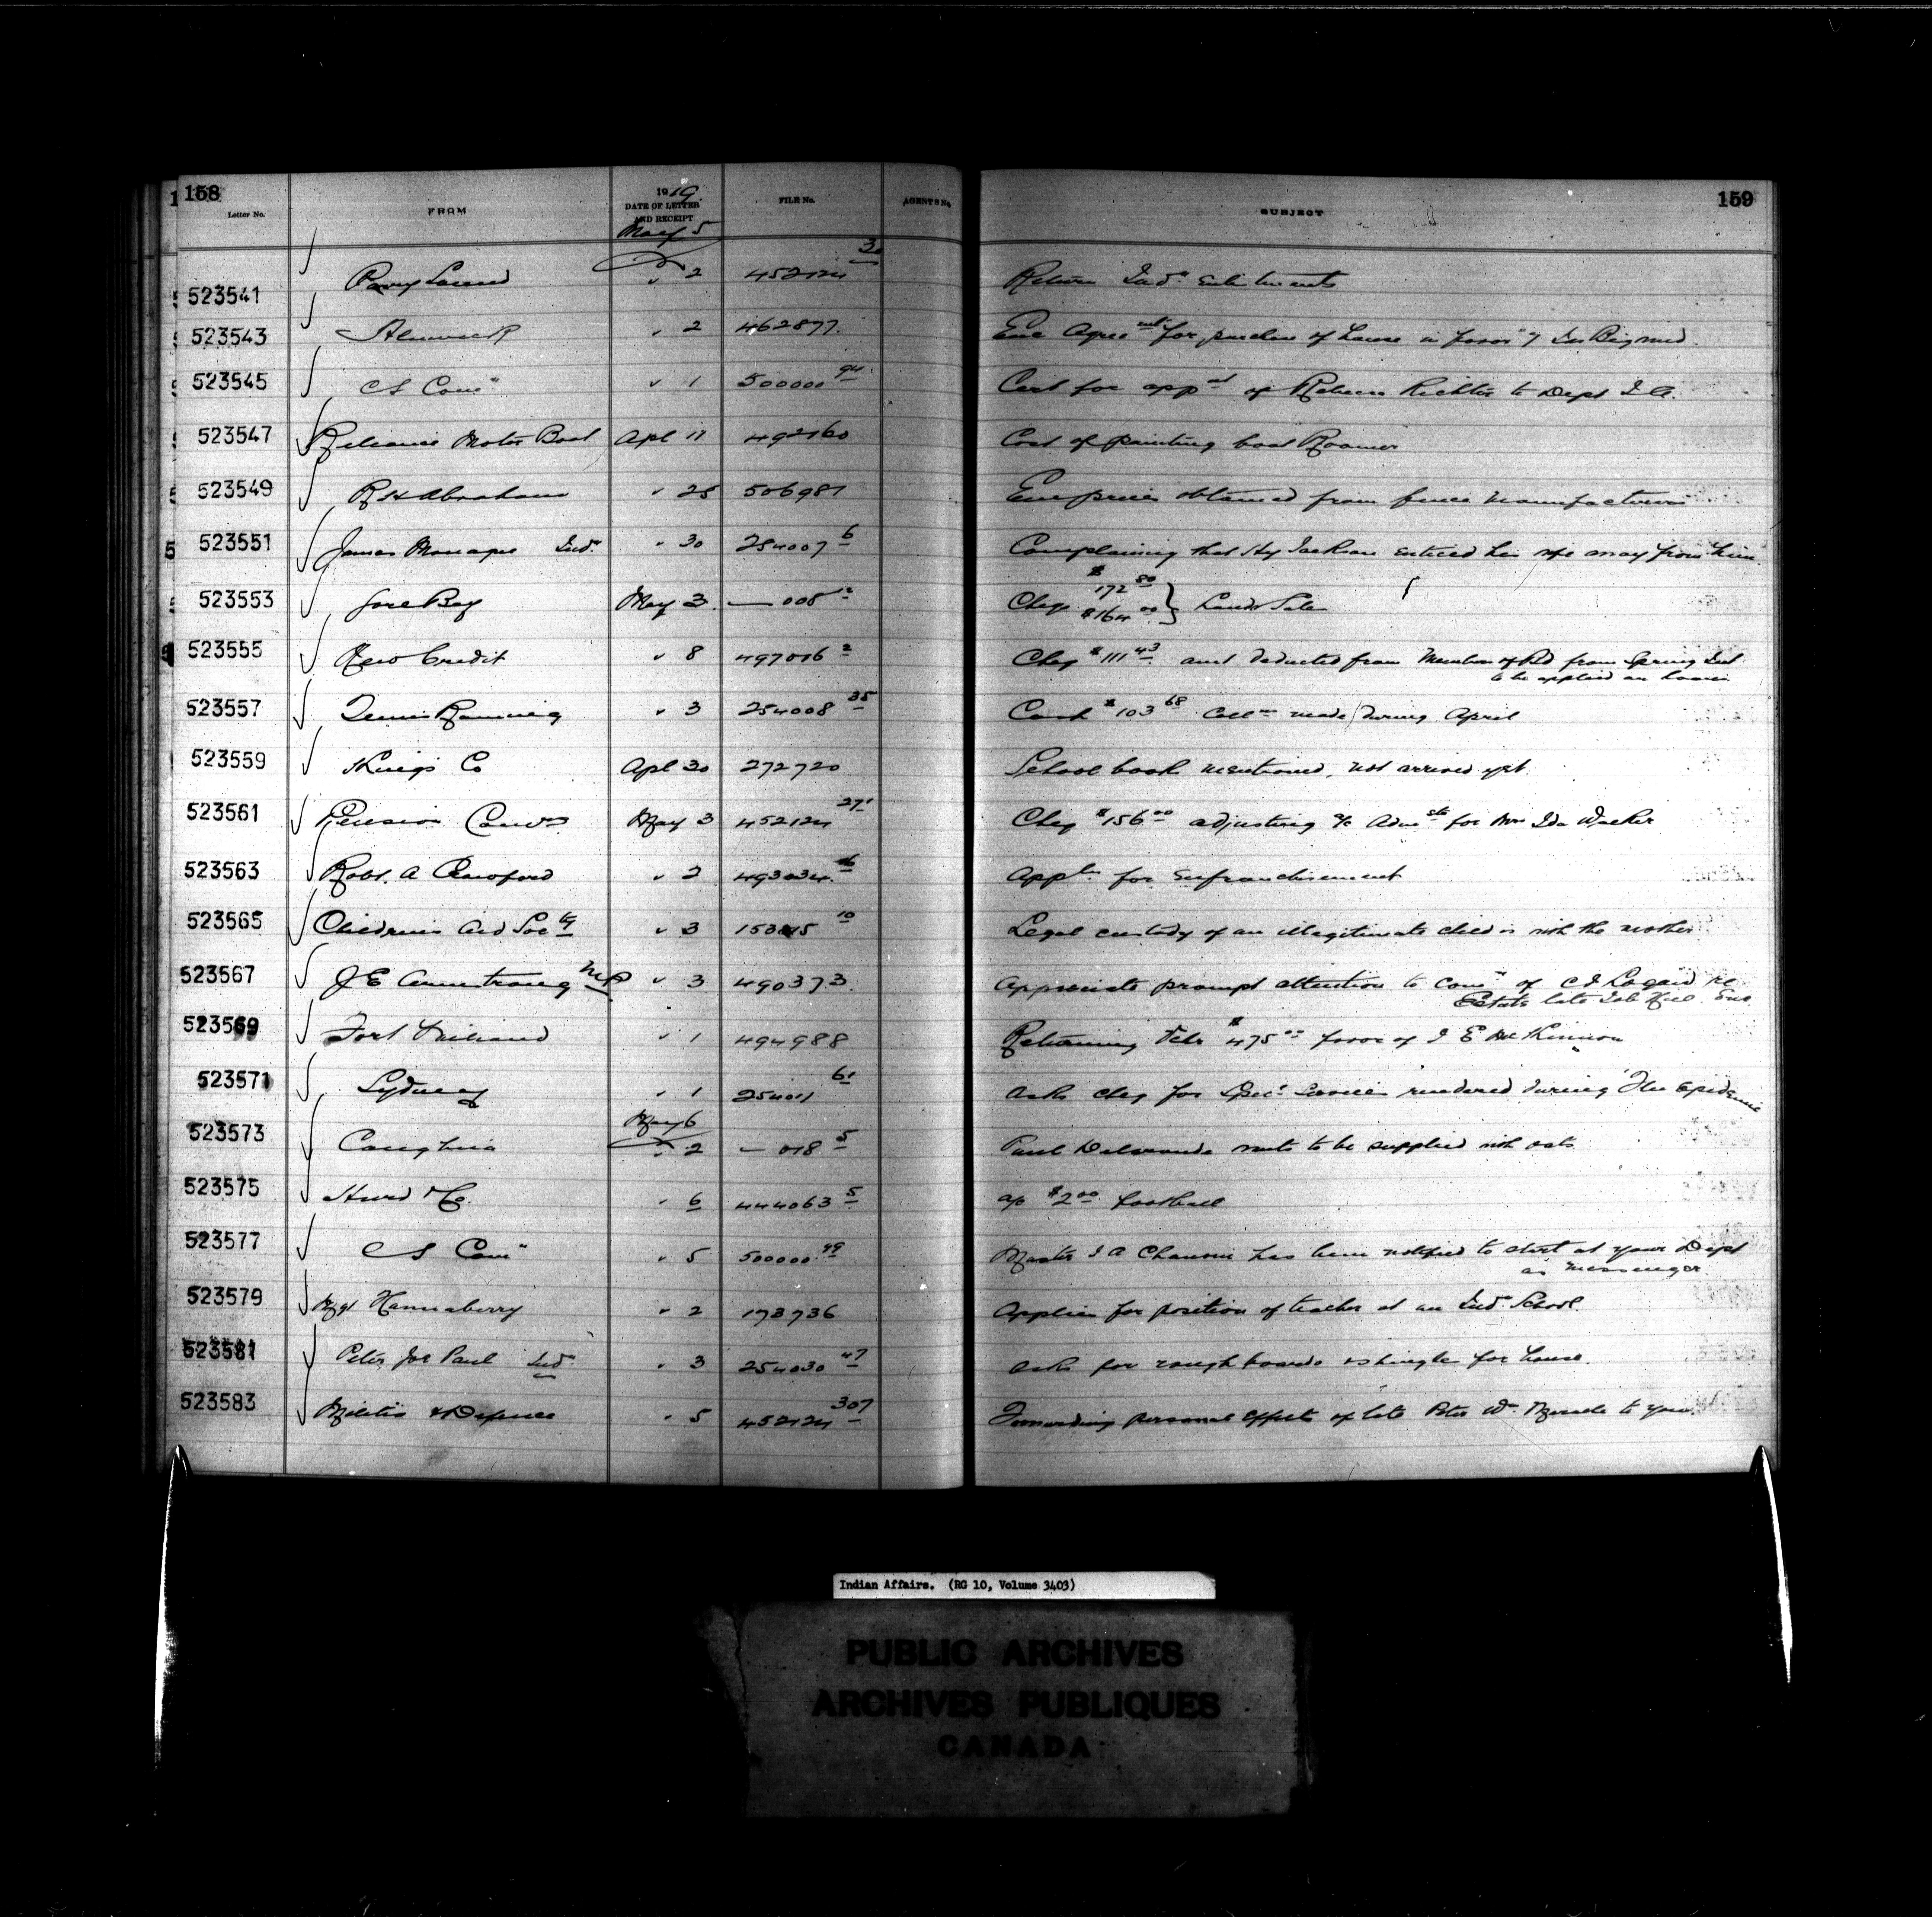 158
159
Letter No. FROM 1919 DATE OF LETTER AND RECEIPT FILE No. AGENTS No. SUBJECT
May 5
523541 Parry Sound " 2 452124 3 Return Indn Enlistments
523543 Alnwick " 2 462877 Enc Agreemt for purchase of house in favor of
523545 C S Comn " 1 500000 94 Cert for appnt of Rebecca Richter to Dept I.A.
523547 Reliance Motor Boat Apl 11 492160 Cost of painting boat Roamer
523549 R H Abraham " 25 506981 Enc prices obtained from fence manufacturers
523551 James Indn " 30 254007 6 Complaining that Hy Jackson enticed his wife away from him
523553 Gore Bay May 3 — 008 Cheq $172 80 $164 00 } Lands Sales
523555 New Credit " 8 497016 2 Cheq $111 43 amt deducted from Members of Bd from Spring Int
to be applied on Loans
523557 " 3 254008 35 Cash $103 68 Collns made during April
523559 Kings Co Apl 30 272720 School books mentioned, not arrived yet.
523561 Pension Comrs May 3 452124 271 Cheq $156 00 adjusting a/c for Mrs Ida Walker
523563 Robt. A Crawford " 2 493034 6 Appln for enfranchisement
523565 Childrens Aid Socty " 3 10 Legal custody of an illegitimate child is with the mother
523567 J E Armstrong MP " 3 490373 Appreciate prompt attention to Comn of re
Estate late Enc
523569 Fort William " 1 494988 Returning $475 00 favor of J E McKinnon
523571 Sydney " 1 254011 61 Asks cheq for services rendered during Flu Epidemic
May 6
523573 Caughnawaga " 2 — 018 5 Paul Delaronde wants to be supplied with oats
523575 & Co. " 6 444063 5 a/c $2 00 football
523577 C S Comn " 5 500000 99 Master J A has been notified to start at your Dept
as messenger
523579 Mgt Hannaberry " 2 173736 Applies for position of teacher at an Indn School.
523581 Peter Joe Paul Indn " 3 254030 47 Asks for rough boards & shingles for house.
523583 Militia & Defence " 5 452124 307 Forwarding personal effects of late Peter Wm to you.
Indian Affairs. (RG 10, Volume 3403)
PUBLIC ARCHIVES
ARCHIVES PUBLIQUES
CANADA